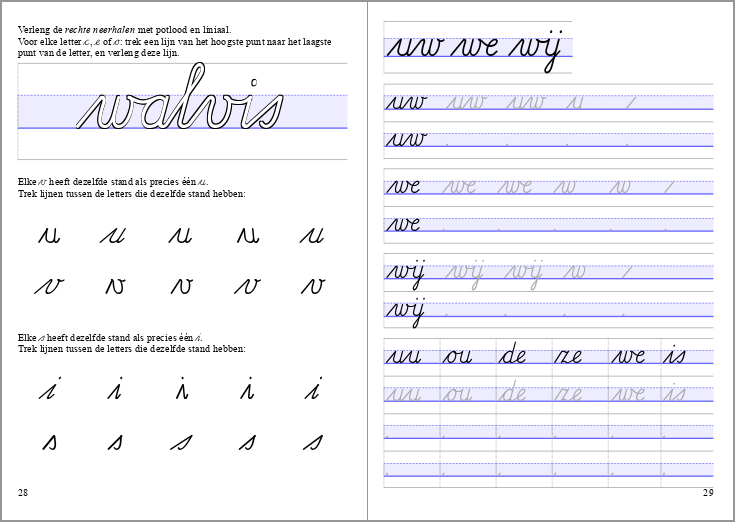 Verleng de rechte neerhalen met potlood en liniaal.
Voor elke letter , of : trek een lijn van het hoogste punt naar het laagste
punt van de letter, en verleng deze lijn.
walvis
Elke v heeft dezelfde stand als precies één u.
Trek lijnen tussen de letters die dezelfde stand hebben:
u u u u u
v v v v v
Elke s heeft dezelfde stand als precies één i.
Trek lijnen tussen de letters die dezelfde stand hebben:
i i i i i
s s s s s
28
uw we wij
uw uw uw u
uw
we we we w w
we
wij wij wij w
wij
uu ou de ze we is
uu ou de ze we is
29